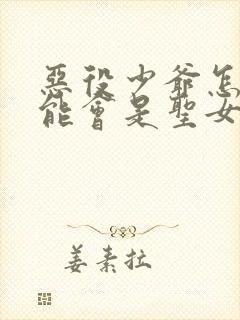 惡役少爺怎
能會是聖女
姜素拉